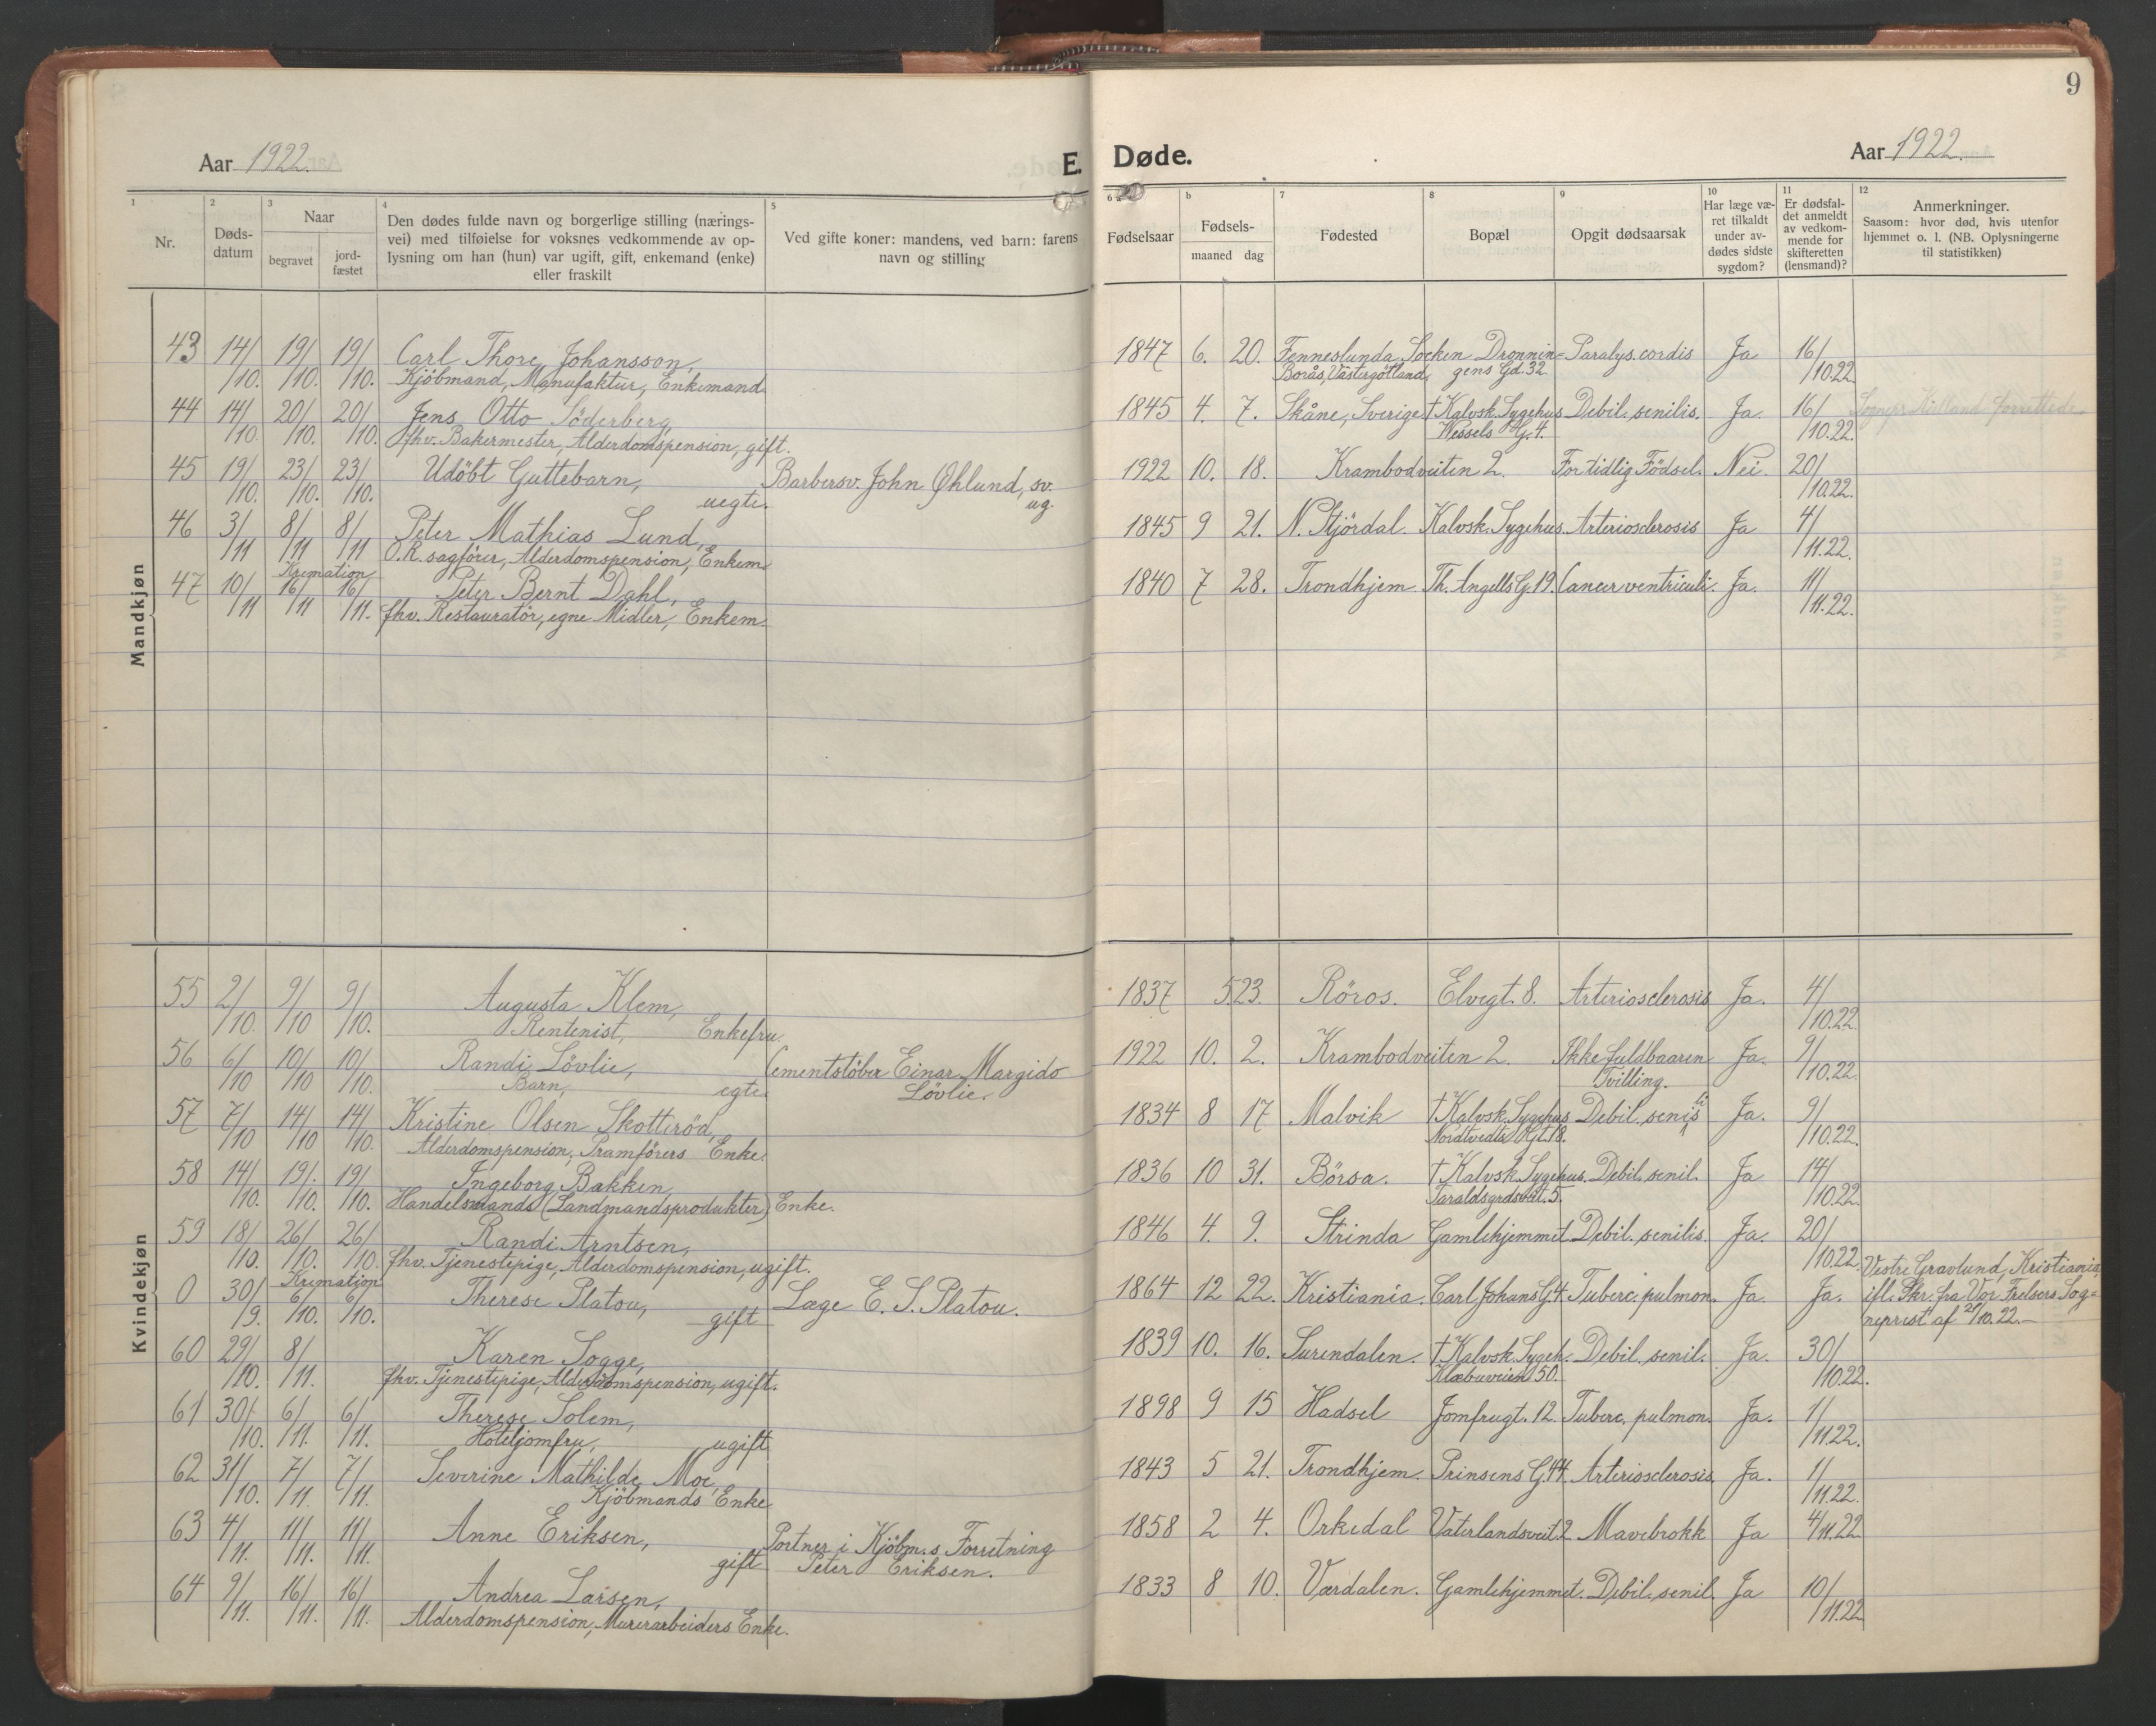 9
Aar 1922.
E. Døde.
Aar 1922.
1 2 3 4 5 6 a b 7 8 9 10 11 12
Nr.
Døds-
datum
Naar
begravet
jord-
fæstet
Den dødes fulde navn og borgerlige stilling (nærings-
vei) med tilføielse for voksnes vedkommende av op-
lysning om han (hun) var ugift, gift, enkemand (enke)
eller fraskilt
Ved gifte koner: mandens, ved barn: farens
navn og stilling
Fødselsaar
Fødsels-
maaned dag
Fødested
Bopæl
Opgit dødsaarsak
Har læge væ-
ret tilkaldt
under av-
dødes sidste
sygdom?
Er dødsfal-
det anmeldt
av vedkom-
mende for
skifteretten
(lensmand)?
Anmerkninger.
Saasom: hvor død, hvis utenfor
hjemmet o. l. (NB. Oplysningerne
til statistikken)
Mandkjøn
43 14/10. 19/10. 19/10. Carl Thore Johansson, 1847 6. 20. Fenneslunda Socken Dronnin- Paralys. cordis Ja 16/10.22
Kjöbmand, Manufaktur, Enkemand Borås, Västergötland, gens Gd. 32.
44 14/10. 20/10. 20/10. Jens Otto Söderberg, 1845 4. 7. Skåne, Sverige † Kalvsk. Sygehus Debil. senilis. Ja. 16/10.22. Sognepr. Killand forrettede.
fhv. Bakermester, Alderdomspension, gift. Wessels G. 4.
45 19/10. 23/10. 23/10. Udöbt Guttebarn, Barbersv. John Øhlund, sv. 1922 10. 18. Krambodveiten 2. For tidlig Födsel. Nei. 20/10.22.
uegte. ug.
46 3/11 8/11 8/11 Peter Mathias Lund, 1845 9 21. N. Stjördal. Kalvsk. Sygehus. Arteriosclerosis Ja 4/11.22.
O.R. sagförer, Alderdomspension, Enkem.
Kremation
47 10/11 16/11 16/11. Peter Bernt Dahl, 1840 7 28. Trondhjem Th. Angells G. 19. Cancer ventriculi. Ja. 11/11.22.
fhv. Restauratör, egne Midler, Enkem.
Kvindekjøn
55 2/10. 9/10 9/10. Augusta Klem, 1837 5 23. Röros. Elvegt. 8. Arteriosclerosis Ja. 4/10.22.
Rentenist, Enkefru.
56 6/10 10/10 10/10. Randi Lövlie, Cementstöber Einar Margido 1922 10. 2. Krambodveiten 2. Ikke fuldbaaren Ja. 9/10.22.
Barn, egte. Lövlie. Tvilling.
57 7/10 14/10 14/10. Kristine Olsen Skotteröd, 1834 8 17 Malvik † Kalvsk. Sygehus Debil. senilis Ja. 9/10.22.
Alderdomspension, Pramförers Enke. Nordtvedts Gt. 18.
58 14/10. 19/10. 19/10. Ingeborg Bakken 1836 10 31. Börsa. † Kalvsk. Sygehus. Debil. senil. Ja 14/10.22
Handelsmands (Landmandsprodukter) Enke. Taraldsgrdsveit. 5.
59 18/10. 26/10. 26/10. Randi Arntsen, 1846 4. 9. Strinda Gamlehjemmet Debil. senilis. Ja. 20/10.22
fhv. Tjenestepige, Alderdomspension, ugift.
Kremation Vestre Gravlund, Kristiania,
0 30/9. 6/10. 6/10. Therese Platou, Læge E. S. Platou. 1864 12 22. Kristiania. Carl Johans G. 4. Tuberc. pulmon. Ja. Ja. ifl. Skr. fra Vor Frelsers Sog-
gift neprest af 21/10.22.
60 29/10. 8/11. Karen Sogge, 1839 10. 16. Surendalen. † Kalvsk. Sygeh. Debil. senil. Ja. 30/10.22.
fhv. Tjenestepige, Alderdomspension, ugift. Klæbuveien 50.
61 30/10. 6/11. 6/11. Therese Solem, 1898 9 15 Hadsel Jomfrugt. 12. Tuberc. pulmon. Ja. 1/11.22.
Hoteljomfru, ugift
62 31/10. 7/11. 7/11. Severine Mathilde Moe, 1843 5 21. Trondhjem. Prinsens G. 44 Arteriosclerosis Ja. 1/11.22.
Kjöbmands Enke
63 4/11. 11/11. 11/11. Anne Eriksen, Portner i Kjöbm.s Forretning 1858 2 4. Orkedal Vaterlandsveit. 2 Mavebrokk Ja 4/11.22
gift Peter Eriksen.
64 9/11. 16/11. 16/11. Andrea Larsen, 1833 8 10. Værdalen. Gamlehjemmet. Debil. senil. Ja 10/11.22
Alderdomspension, Murerarbeiders Enke.